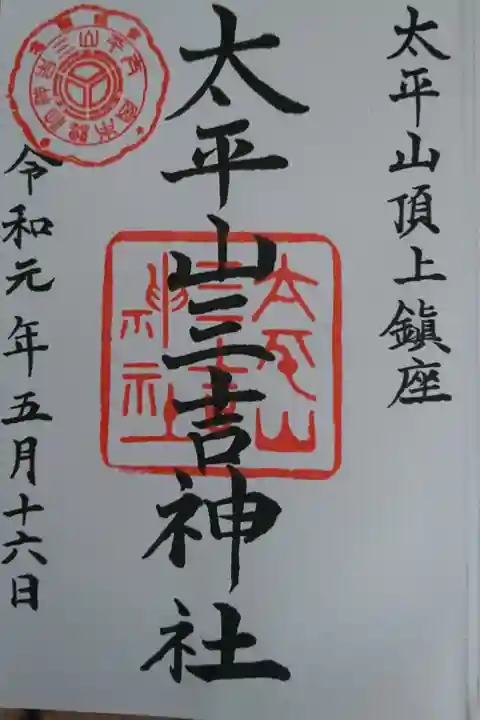 太平山頂上鎮座
太平山三吉神社
令和元年五月十六日
太平山
三吉
神社